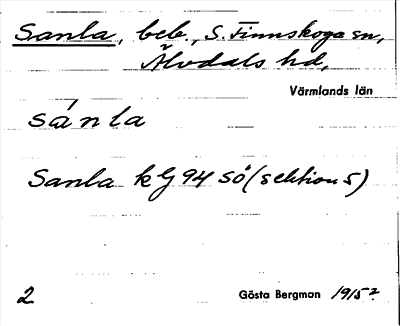 Sanla, beb., S. Finnskoga sn,
Älvdals hd,
Värmlands län
sánla
Sanla kG 94 SÖ (sektion 5)
2 Gösta Bergman 1915?